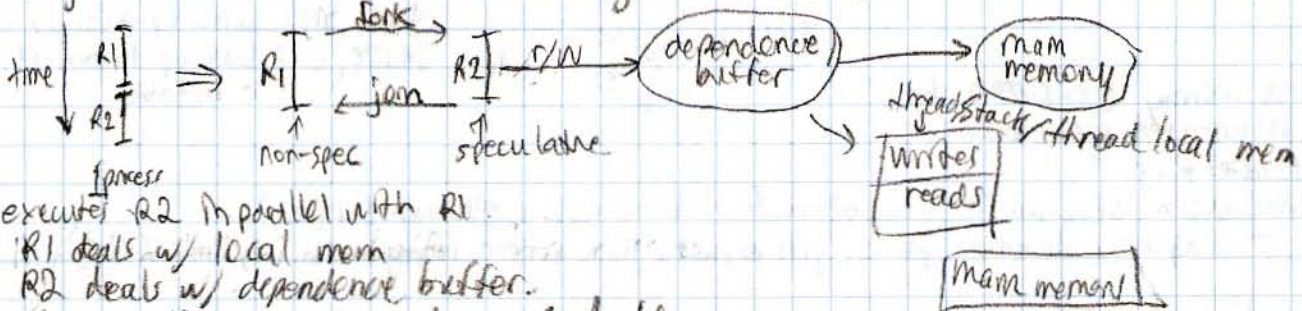 time R1 R2 ⇒ R1 fork join R2 r/w dependence buffer main memory
non-spec speculative
1 process
threadStack/thread local mem
writes
reads
executes R2 in parallel with R1.
R1 deals w/ local mem
R2 deals w/ dependence buffer.
main memory